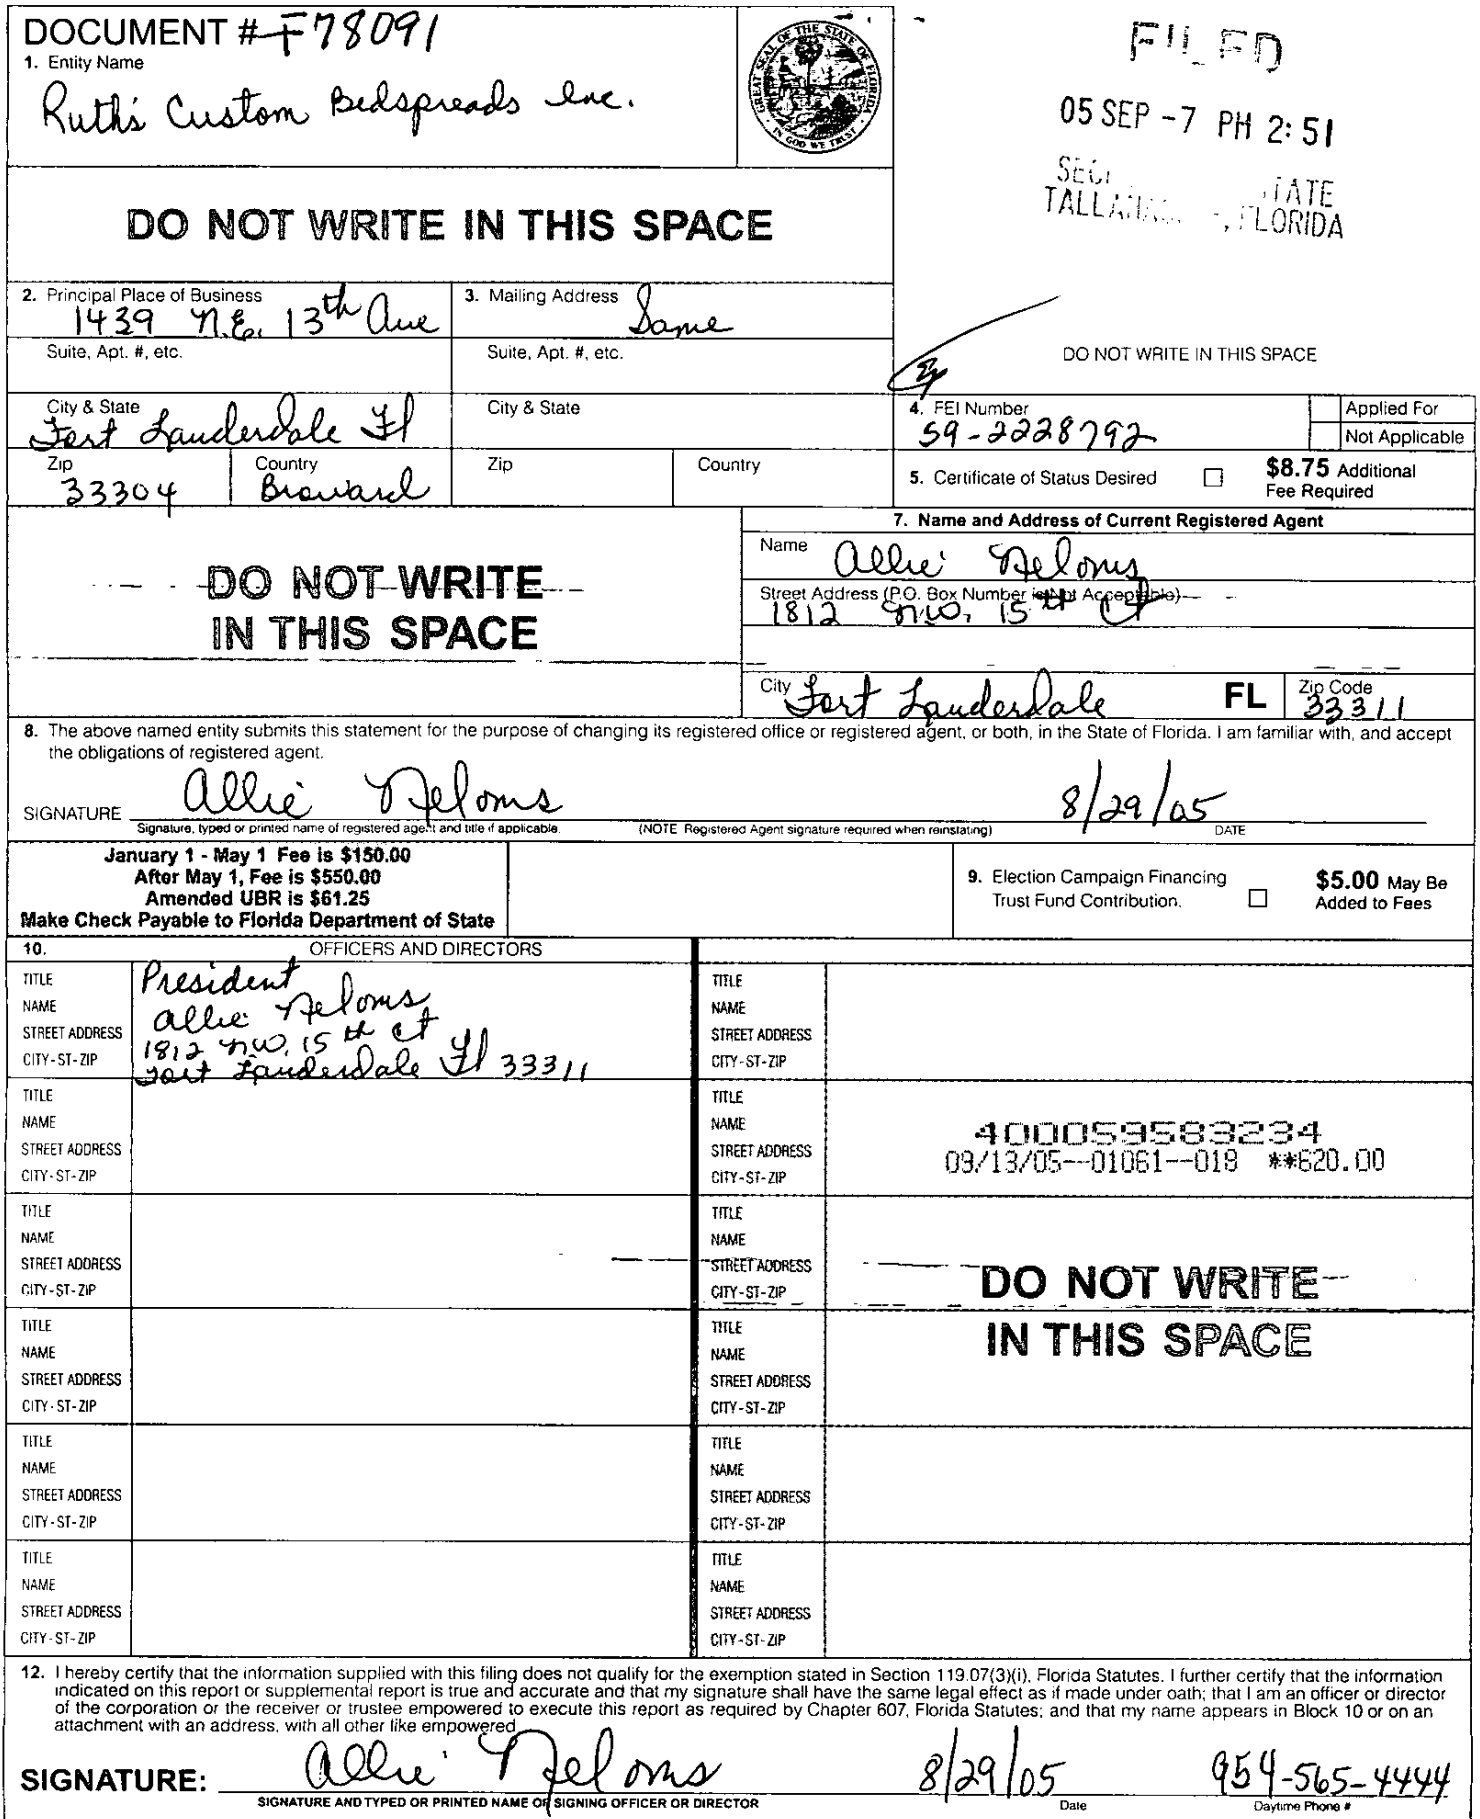 DOCUMENT # F78091
1. Entity Name
Ruth's Custom Bedspreads Inc.
GREAT SEAL OF THE STATE OF FLORIDA
IN GOD WE TRUST
FILED
05 SEP -7 PM 2:51
TATE
FLORIDA
DO NOT WRITE IN THIS SPACE
2. Principal Place of Business
1439 N.E. 13th Ave
3. Mailing Address
Same
Suite, Apt. #, etc.
Suite, Apt. #, etc.
DO NOT WRITE IN THIS SPACE
City & State
Fort Lauderdale Fl
City & State
4. FEI Number
59-2228792
Applied For
Not Applicable
Zip
33304
Country
Broward
Zip
Country
5. Certificate of Status Desired
$8.75 Additional
Fee Required
DO NOT WRITE
IN THIS SPACE
7. Name and Address of Current Registered Agent
Name
Allie Neloms
Street Address (P.O. Box Number is Not Acceptable)
1812 N.W. 15th Ct
City Fort Lauderdale FL
Zip Code
33311
8. The above named entity submits this statement for the purpose of changing its registered office or registered agent, or both, in the State of Florida. I am familiar with, and accept
the obligations of registered agent.
SIGNATURE Allie Neloms 8/29/05
Signature, typed or printed name of registered agent and title if applicable. (NOTE Registered Agent signature required when reinstating) DATE
January 1 - May 1 Fee is $150.00
After May 1, Fee is $550.00
Amended UBR is $61.25
Make Check Payable to Florida Department of State
9. Election Campaign Financing
Trust Fund Contribution.
$5.00 May Be
Added to Fees
10. OFFICERS AND DIRECTORS
TITLE President
NAME Allie Neloms
STREET ADDRESS 1812 N.W. 15th Ct
CITY-ST-ZIP Fort Lauderdale Fl 33311
TITLE
NAME
STREET ADDRESS
CITY-ST-ZIP
TITLE
NAME
STREET ADDRESS
CITY-ST-ZIP
TITLE
NAME
STREET ADDRESS
CITY-ST-ZIP
TITLE
NAME
STREET ADDRESS
CITY-ST-ZIP
TITLE
NAME
STREET ADDRESS
CITY-ST-ZIP
TITLE
NAME
STREET ADDRESS
CITY-ST-ZIP
TITLE
NAME
STREET ADDRESS
CITY-ST-ZIP
400059583234
09/13/05--01061--018 **620.00
TITLE
NAME
STREET ADDRESS
CITY-ST-ZIP
DO NOT WRITE
IN THIS SPACE
TITLE
NAME
STREET ADDRESS
CITY-ST-ZIP
TITLE
NAME
STREET ADDRESS
CITY-ST-ZIP
TITLE
NAME
STREET ADDRESS
CITY-ST-ZIP
12. I hereby certify that the information supplied with this filing does not qualify for the exemption stated in Section 119.07(3)(i), Florida Statutes. I further certify that the information
indicated on this report or supplemental report is true and accurate and that my signature shall have the same legal effect as if made under oath; that I am an officer or director
of the corporation or the receiver or trustee empowered to execute this report as required by Chapter 607, Florida Statutes; and that my name appears in Block 10 or on an
attachment with an address, with all other like empowered
SIGNATURE: Allie Neloms 8/29/05 954-565-4444
SIGNATURE AND TYPED OR PRINTED NAME OF SIGNING OFFICER OR DIRECTOR Date Daytime Phone #